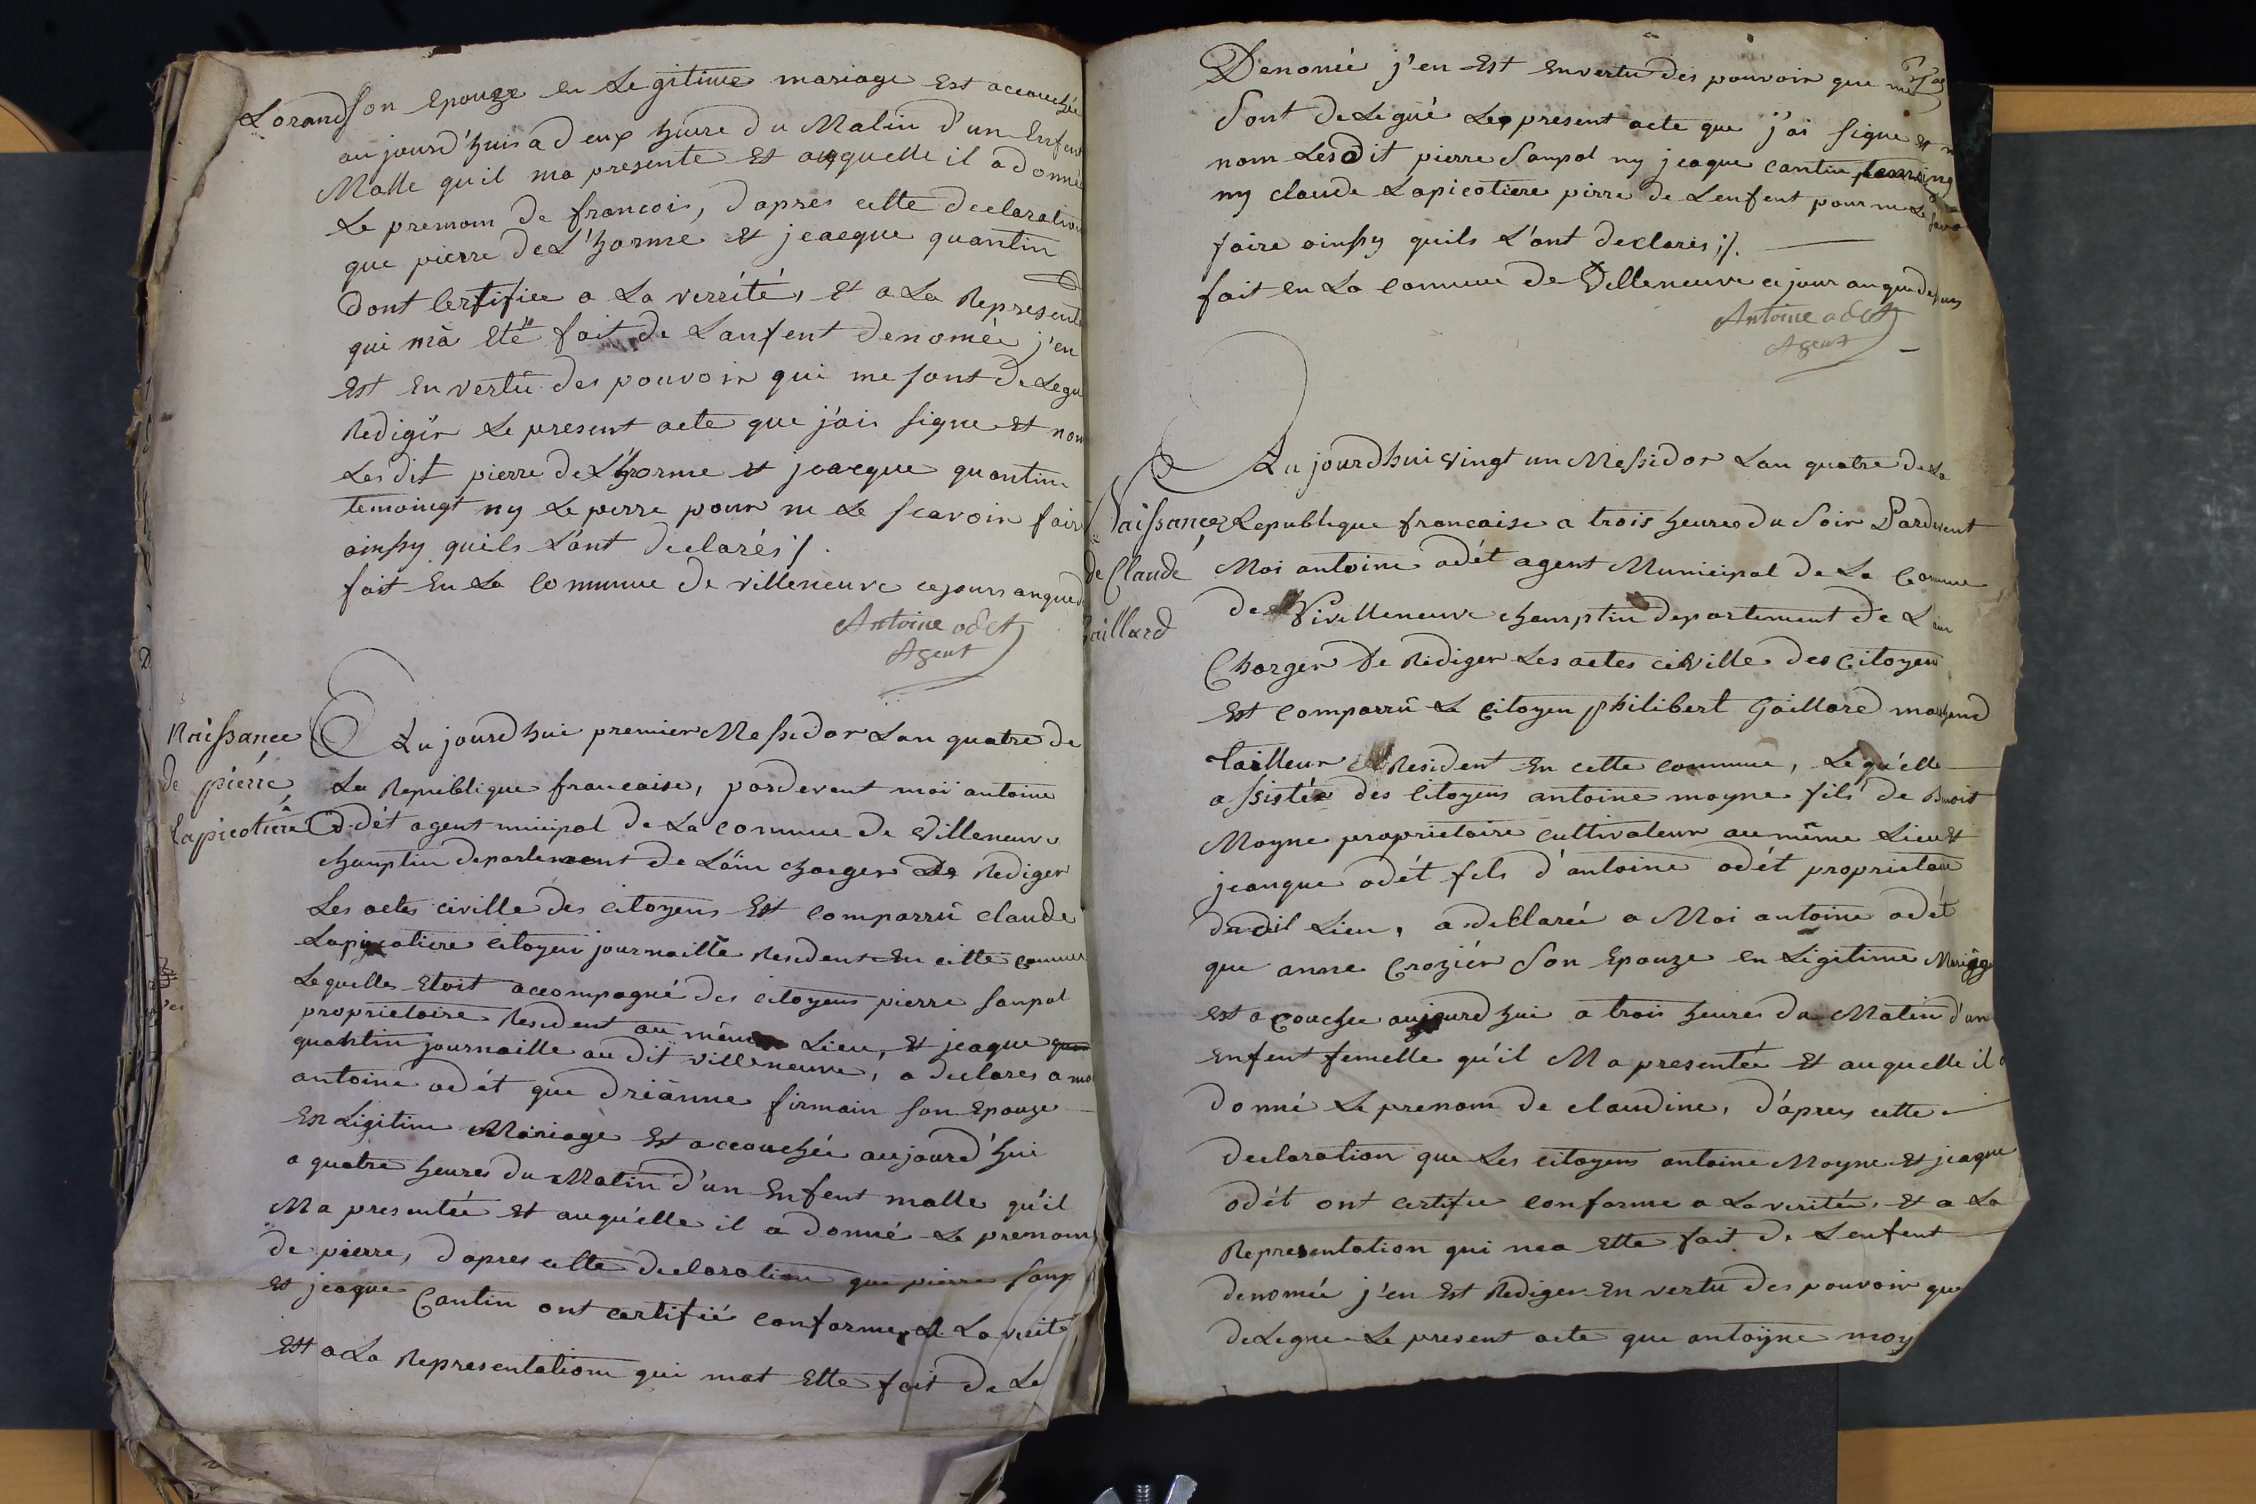 Lorand son epouze en Legitime mariage Est accouchée
aujourd'huis a deux heure du Matin d'un Enfent
Malle qu'il ma presente Et auquelle il a donné
Le premom de francois, d'apres cette declaration
que pierre de L'horme Et jeacque quantin
dont Certifiee a La verrité, Et a La Represent
qui m'a Eté fait de Lanfent denomée j'en
Est En vertu des pouvoir qui me sont deLegu
Redigir Le present acte que j'ai signe Et non
Lesdit pierre de L'horme Et jeacque quantin
temoingt ny Le perre pour ne Le scavoir fair
ainssy quils L'ont declarés ;/.
fait En La Commune de villeneuve cejours anqued
Antoine odet
Agent
Naissance
de pierre
Lapicotiere
Au jourd'hui premier Messidor Lan quatre de
La Republique francaise, pardevent moi antoine
Odét agent minipal de La commune de villeneuve
champtin departement de L'ain charger de Rediger
Les actes civille des citoyens Est Comparrû claude
Lapicotiere citoyen journaille Resident En cette Commue
Lequelle Etoit accompagné des citoyens pierre sanpol
proprietaire Resident au même Lieu, Et jeaque
quantin journaille au dit villeneuve, a declares a moi
antoine odét que driànne firmain son Epouze
En Ligitime Mariage Est accouchée aujourd'hui
a quatre heures du Matin d'un Enfent malle qu'il
Ma presentée Et auqu'elle il a donné Le premom
de pierre, dapres cette declaration que pierre sanp
Et jeaque Cantin ont certifié conforme a La verite
Est a La Representation qui mat Ette fait de Le
Denomée j'en Est Envertu des pouvoir que me
Sont deLegué Le present acte que j'ai signe Et n
nom Lesdit pierre Sanpol ny jeaque cantin
ny claude Lapicotiere pirre de Lenfent pour ne Le savo
faire ainssy quils L'ont declarés ;/.
fait En La Commune de Villeneuve ce jour anquedesus
Antoine odet
Agent
Naissance
de Claude
Gaillard
Au jourdhui vingt un Messidor Lan quatre de La
Republique francaise a trois heures du Soir Pardevent
Moi antoine odét agent Municipal de La Comune
de Vivilleneuve champtin departement de L'ain
Charger De Rediger Les actes civille des Citoyen
Est Comparrû Le Citoyen philibert Gaillard marchend
tailleur Resident En cette Commune, Lequ'elle
assistée des Citoyens antoine moyne fils de Benoit
Moyne proprietaire Cultivateur au même Lieu Et
jeanque odét fils d'antoine odét proprietaire
dudit Lieu, a decllarée a Moi antoine odét
que anne Croziér Son Epouze En Ligitime Mariage
Est acouchee aujourd'hui a trois heures du Matin d'un
Enfent femelle qu'il Ma presentée Et auquelle il a
donné Le prenom de claudine, d'apres cette
declaration que Les citoyens antoine Moyne Et jeaque
odét ont certifie Conforme a La verité, Et a La
Representation qui mea Ette fait de Lenfent
denomée j'en Est Rediger En vertu des pouvoir que
deLegue Le present acte que antoïne moy